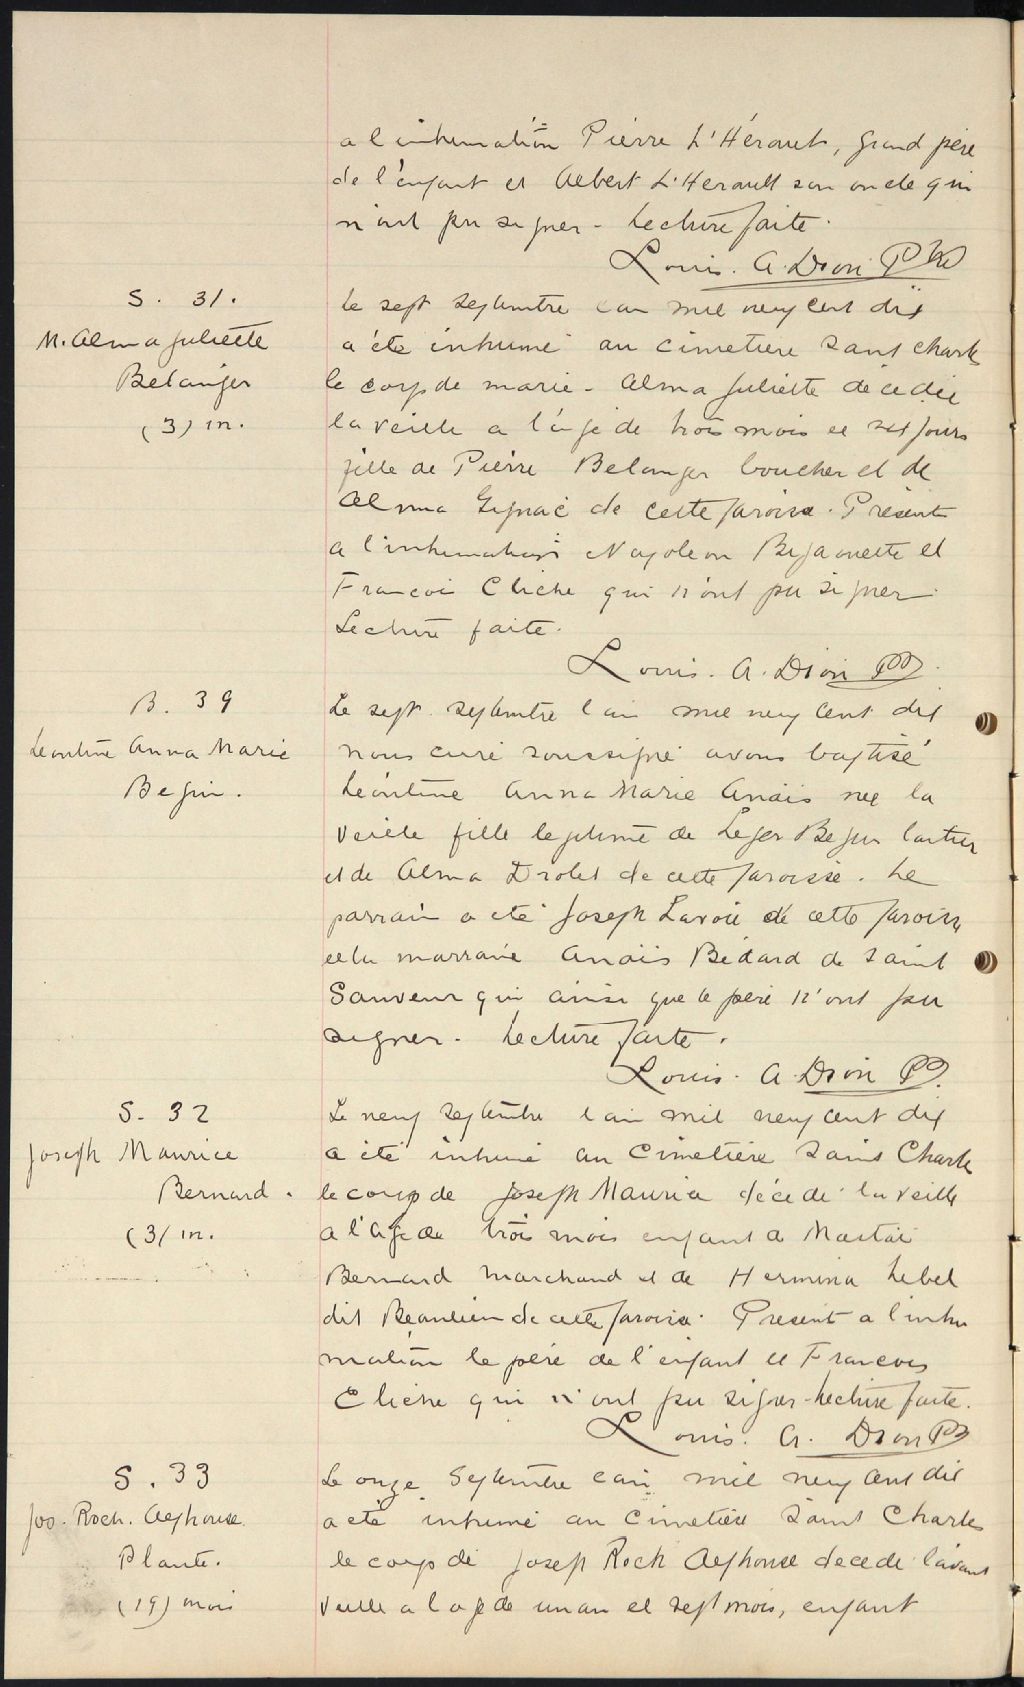 a l'inhumation Pierre L'Hérault, grand père
de l'enfant et Albert L'Herault son oncle qui
n'ont pu signer - Lecture faite.
Louis. A. Dion Ptre
S. 31.
M. Alma Juliette
Belanger
(3) m.
Le sept septembre l'an mil neuf cent dix
a été inhumé au cimetiere Saint Charles
le corps de marie - Alma Juliette décédée
la veille a l'âge de trois mois et jours
fille de Pierre Belanger boucher et de
Alma Gignac de cette paroisse. Présents
a l'inhumation Napoleon et
Francois Cliche qui n'ont pu signer.
Lecture faite.
Louis. A. Dion Ptre
B. 39
Leontine Anna Marie
Begin.
Le sept septembre l'an mil neuf cent dix
nous curé soussigné avons baptisé
Léontine Anna Marie Anais née la
veille fille legitime de Leger Begin
et de Alma Drolet de cette paroisse. Le
parrain a été Joseph Lavoie de cette paroisse
et la marraine Anais Bédard de Saint
Sauveur qui ainsi que le père n'ont pu
signer. Lecture faite.
Louis. A. Dion Ptre
S. 32
Joseph Maurice
Bernard.
(3) m.
Le neuf septembre l'an mil neuf cent dix
a été inhumé au Cimetière Saint Charles
le corps de Joseph Maurice décédé la veille
a l'age de trois mois enfant de
Bernard marchand et de Hermina Lebel
dit Beaulieu de cette paroisse. Present a l'inhu
mation le père de l'enfant et Francois
Cliche qui n'ont pu signer - Lecture faite.
Louis. A. Dion Ptre
S. 33
Jos. Roch. Alphonse
Plante.
(19) mois
Le onze Septembre l'an mil neuf cent dix
a été inhumé au Cimetière Saint Charles
le corps de Joseph Roch Alphonse decede l'avant
veille a l'age de un an et sept mois, enfant